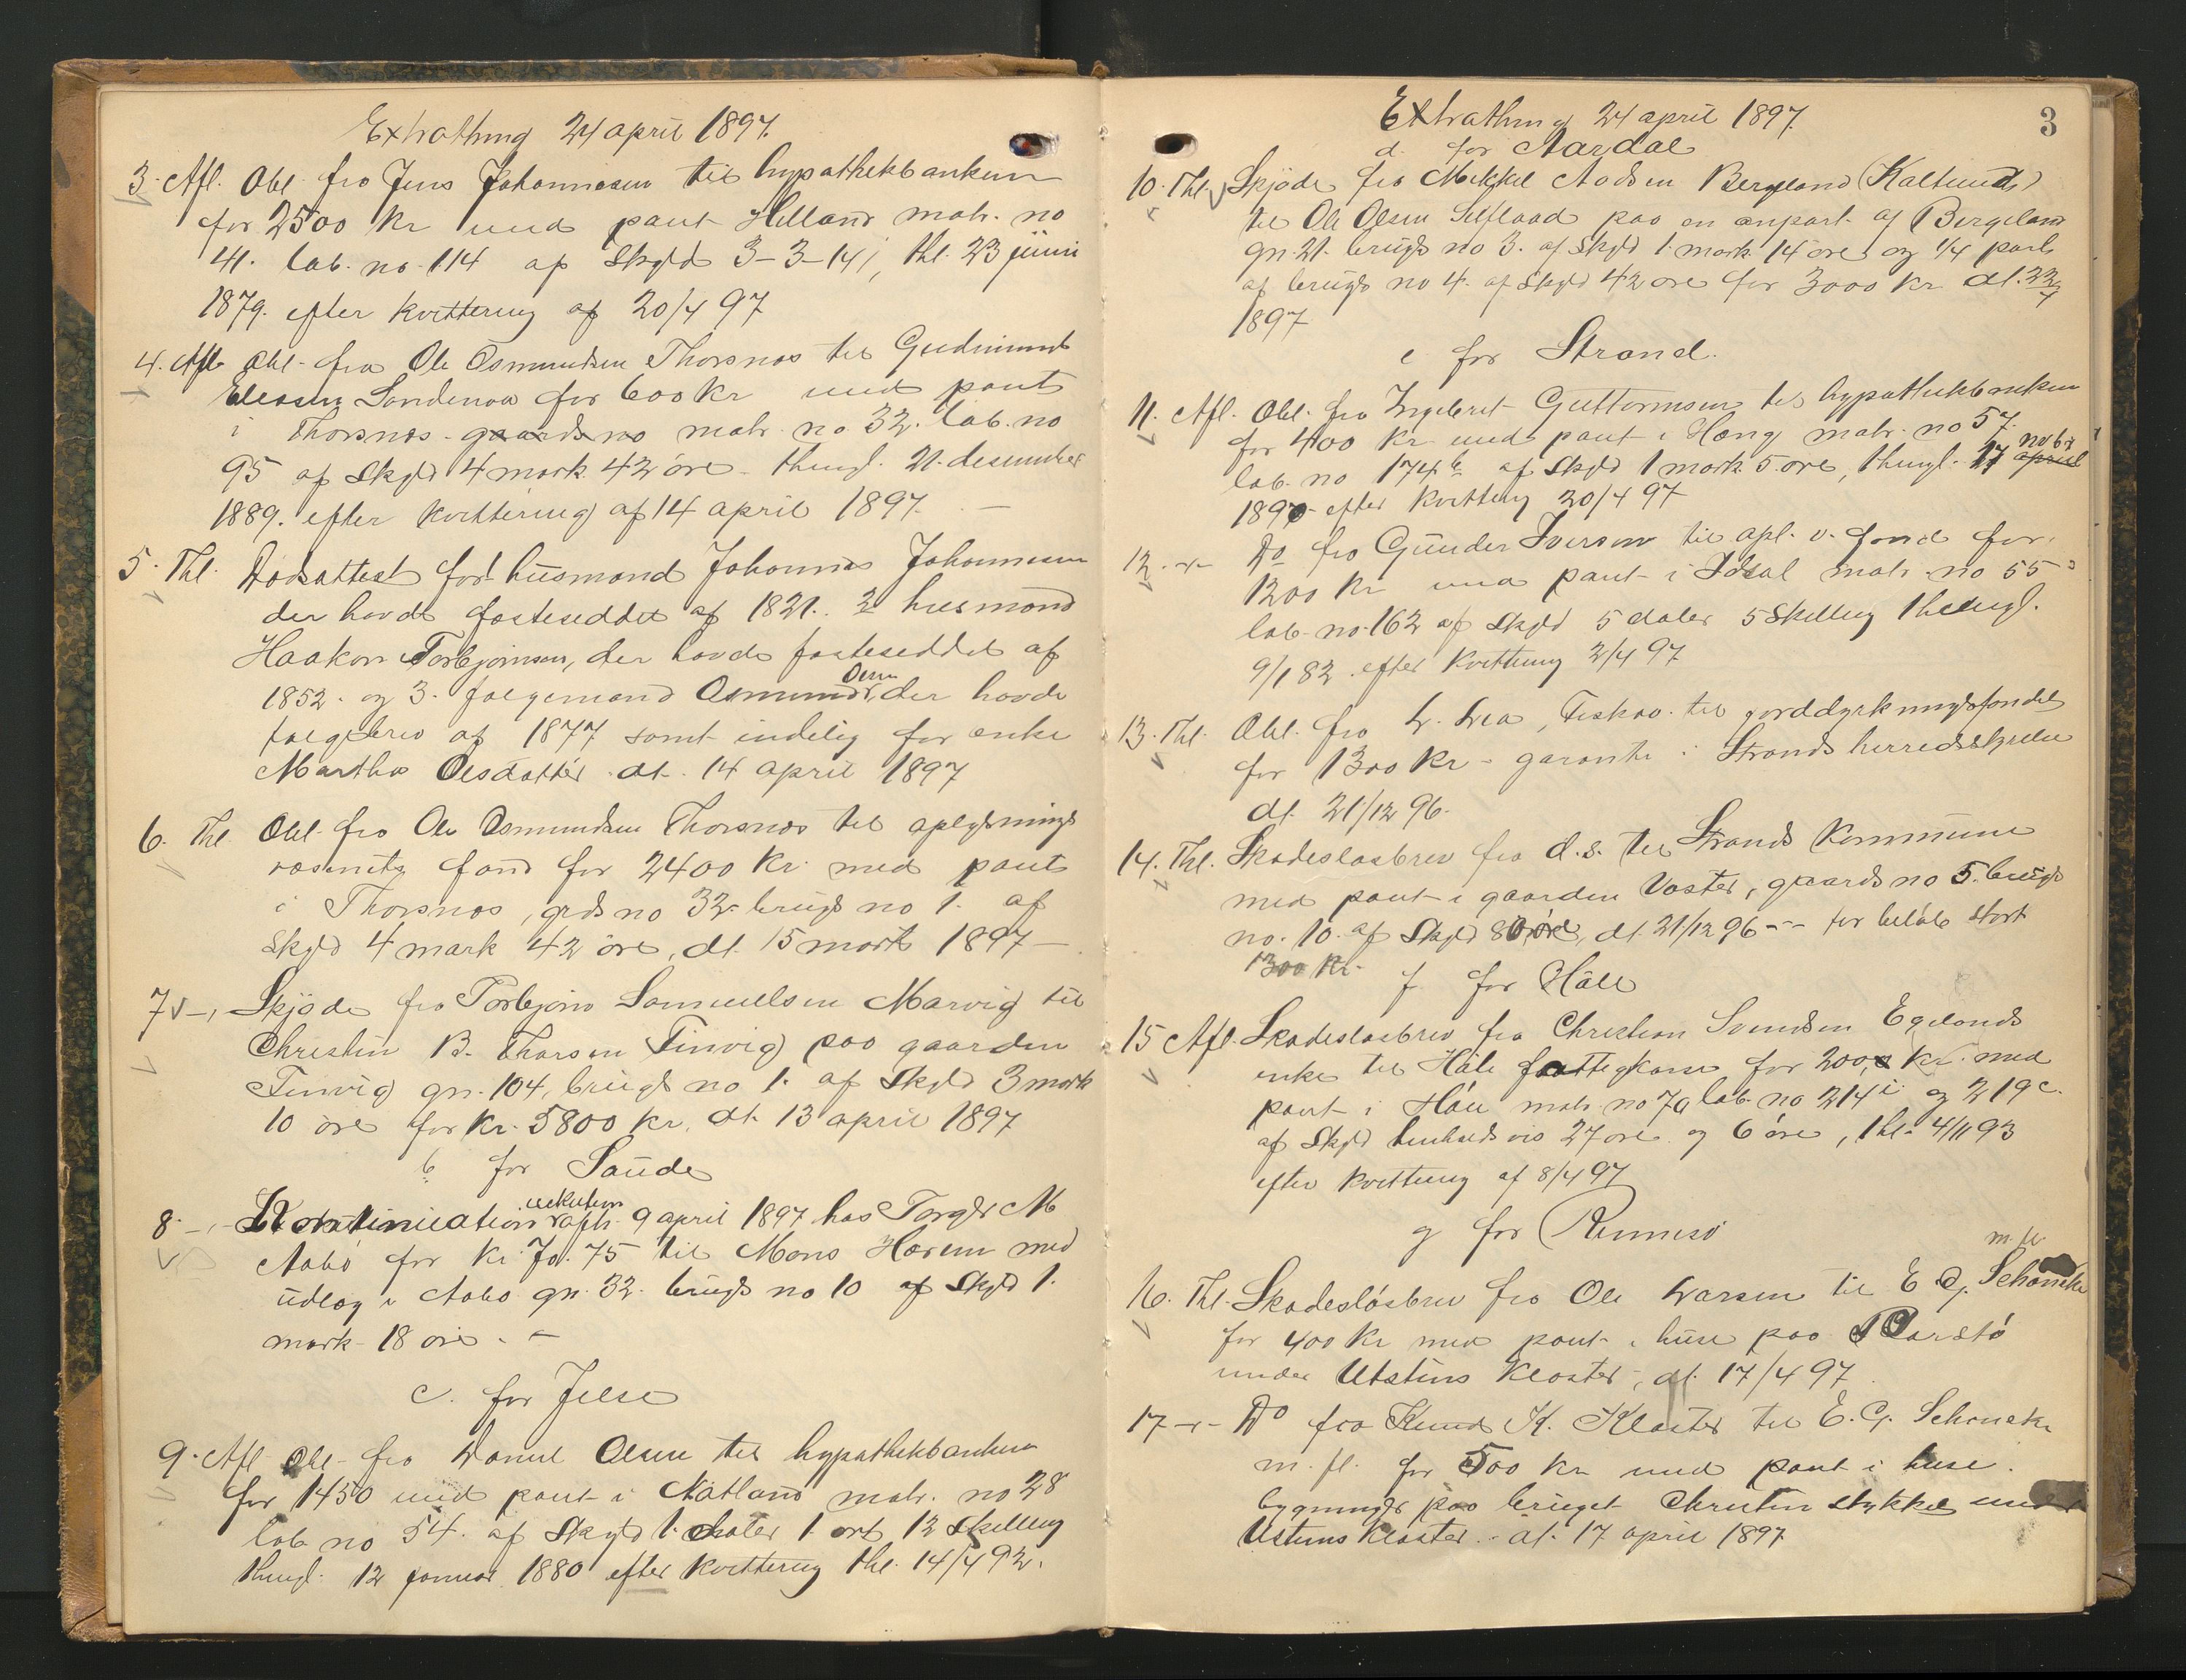 Extrathing 24 april 1897.
3. Afl. Obl. fra Jens Johannesen til hypothekbanken
for 2500 kr med pant Helland matr. no
41. løb. no. 114 af Skyld 3-3-14, thl. 23 juni
1879. efter kvittering af 20/4 97
4. Afl. Obl. fra Ole Osmundsen Thorsnos til Gudmund
Eleasen Sandenoa for 600 kr med pant
i Thorsnos - gaards no matr. no 32. løb. no
95 af Skyld 4 mark 42 øre - thingl. 21. desember
1889. efter kvittering af 14 april 1897. -
5. Thl. Dødsattest for 1 husmand Johannes Johannesen
der havde fæsteseddel af 1821. 2 husmand
Haakon Torbjørnsen, der havde fæsteseddel af
1852. og 3. følgemand Osmund Olsen, der havde
følgebrev af 1877 samt indelig for enke
Martha Olsdatter. dt. 14 april 1897
6. Thl. Obl. fra Ole Osmundsen Thorsnos til oplysnings
væsenets fond for 2400 kr. med pant
i Thorsnos, grds no 32. brugs no 1. af
skyld 4 mark 42 øre, dt. 15 mart 1897 -
7 -"- Skjøde fra Torbjørn Samuelsen Marvig til
Christen B. Thorsen Tinvig paa gaarden
Tinvig gn. 104, brugs no 1. af Skyld 3 mark
10 øre for kr. 5800 kr. dt. 13 april 1897
b for Saude
8. -"- aph. 9 april 1897 hos Torger M
Aabø for kr. 70.75 til Mons Haren med
udlæg i Aabø gn. 32. brugs no 10 af Skyld 1.
mark 18 øre. -
c. for Jelse
9. Afl. Obl. fra Daniel Olsen til hypothekbanken
for 1450 med pant i Natland matr. no 28
løb no 54. af Skyld 1. daler 1. ort 12 skilling
thingl. 12 januar 1880 efter kvittering thl. 14/4 92.
3
Extrathing 24 april 1897.
d. for Aardal
10. Thl. Skjøde fra Mikkel Aadsen Bergeland (Kaltund)
til Ole Olsen Selflaad paa en anpart af Bergeland
gn. 21. brugs no 3. af skyld 1. mark 14 øre og 1/4 part
af brugs no 4. af skyld 42 øre for 3000 kr dt. 22/4
1897
e for Strand.
11. Afl. Obl. fra Ingebret Guttormsen til hypothekbanken
for 400 kr med pant i Høng matr. no 57.
løb. no 174 b af Skyld 1 mark 5 øre, thingl. 17 april nobr
1890 efter kvittering 20/4 97
12. -"- Do fra Gunder Iversen til opl. v. fond for
1200 kr med pant i Idsal matr. no 55
løb. no. 162 af Skyld 5 daler 5 Skilling thingl.
9/1 82. efter kvittering 2/4 97
13. Thl. Obl. fra L. Lea, Fiskaa til jorddyrkningsfondet
for 1300 kr - garanti: Strands herredsstyrelse
dt. 21/12 96.
14. Thl. Skadesløsbrev fra d.s. til Strands Kommune
med pant i gaarden Voster, gaards no 5. brugs
no. 10. af Skyld 80 øre, dt. 21/12 96 -- for beløb stort
1300 kr.
f for Håle
15 Afl. Skadesløsbrev fra Christian Svendsen Egelands
enke til Håle fattigkasse for 200, kr. med
pant i Håle matr. no 70 løb. no 214 i og 219 c.
af Skyld henholdsvis 27 øre og 6 øre, thl. 4/11 93
efter kvittering af 8/4 97
g for Rennesø
16. Thl. Skadesløsbrev fra Ole Larsen til E. G. Schancke m. fl.
for 400 kr med pant i huse paa
under Utstens Kloster, dt. 17/4 97.
17 -"- Do fra Knud K. Kloster til E. G. Schancke
m. fl. for 500 kr med pant i huse.
bygninger paa bruget Christen stykket under
Ustens Kloster. dt. 17 april 1897